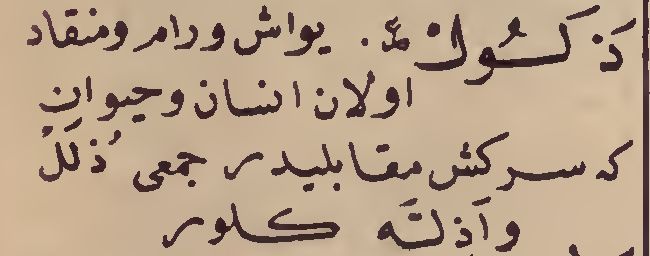 ذَلُولْ . يواش ورام ومنقاد
اولان انسان وحيوان
كه سركش مقابليدر جمعى ذُلَلْ
وَاَذِلَّه كلور